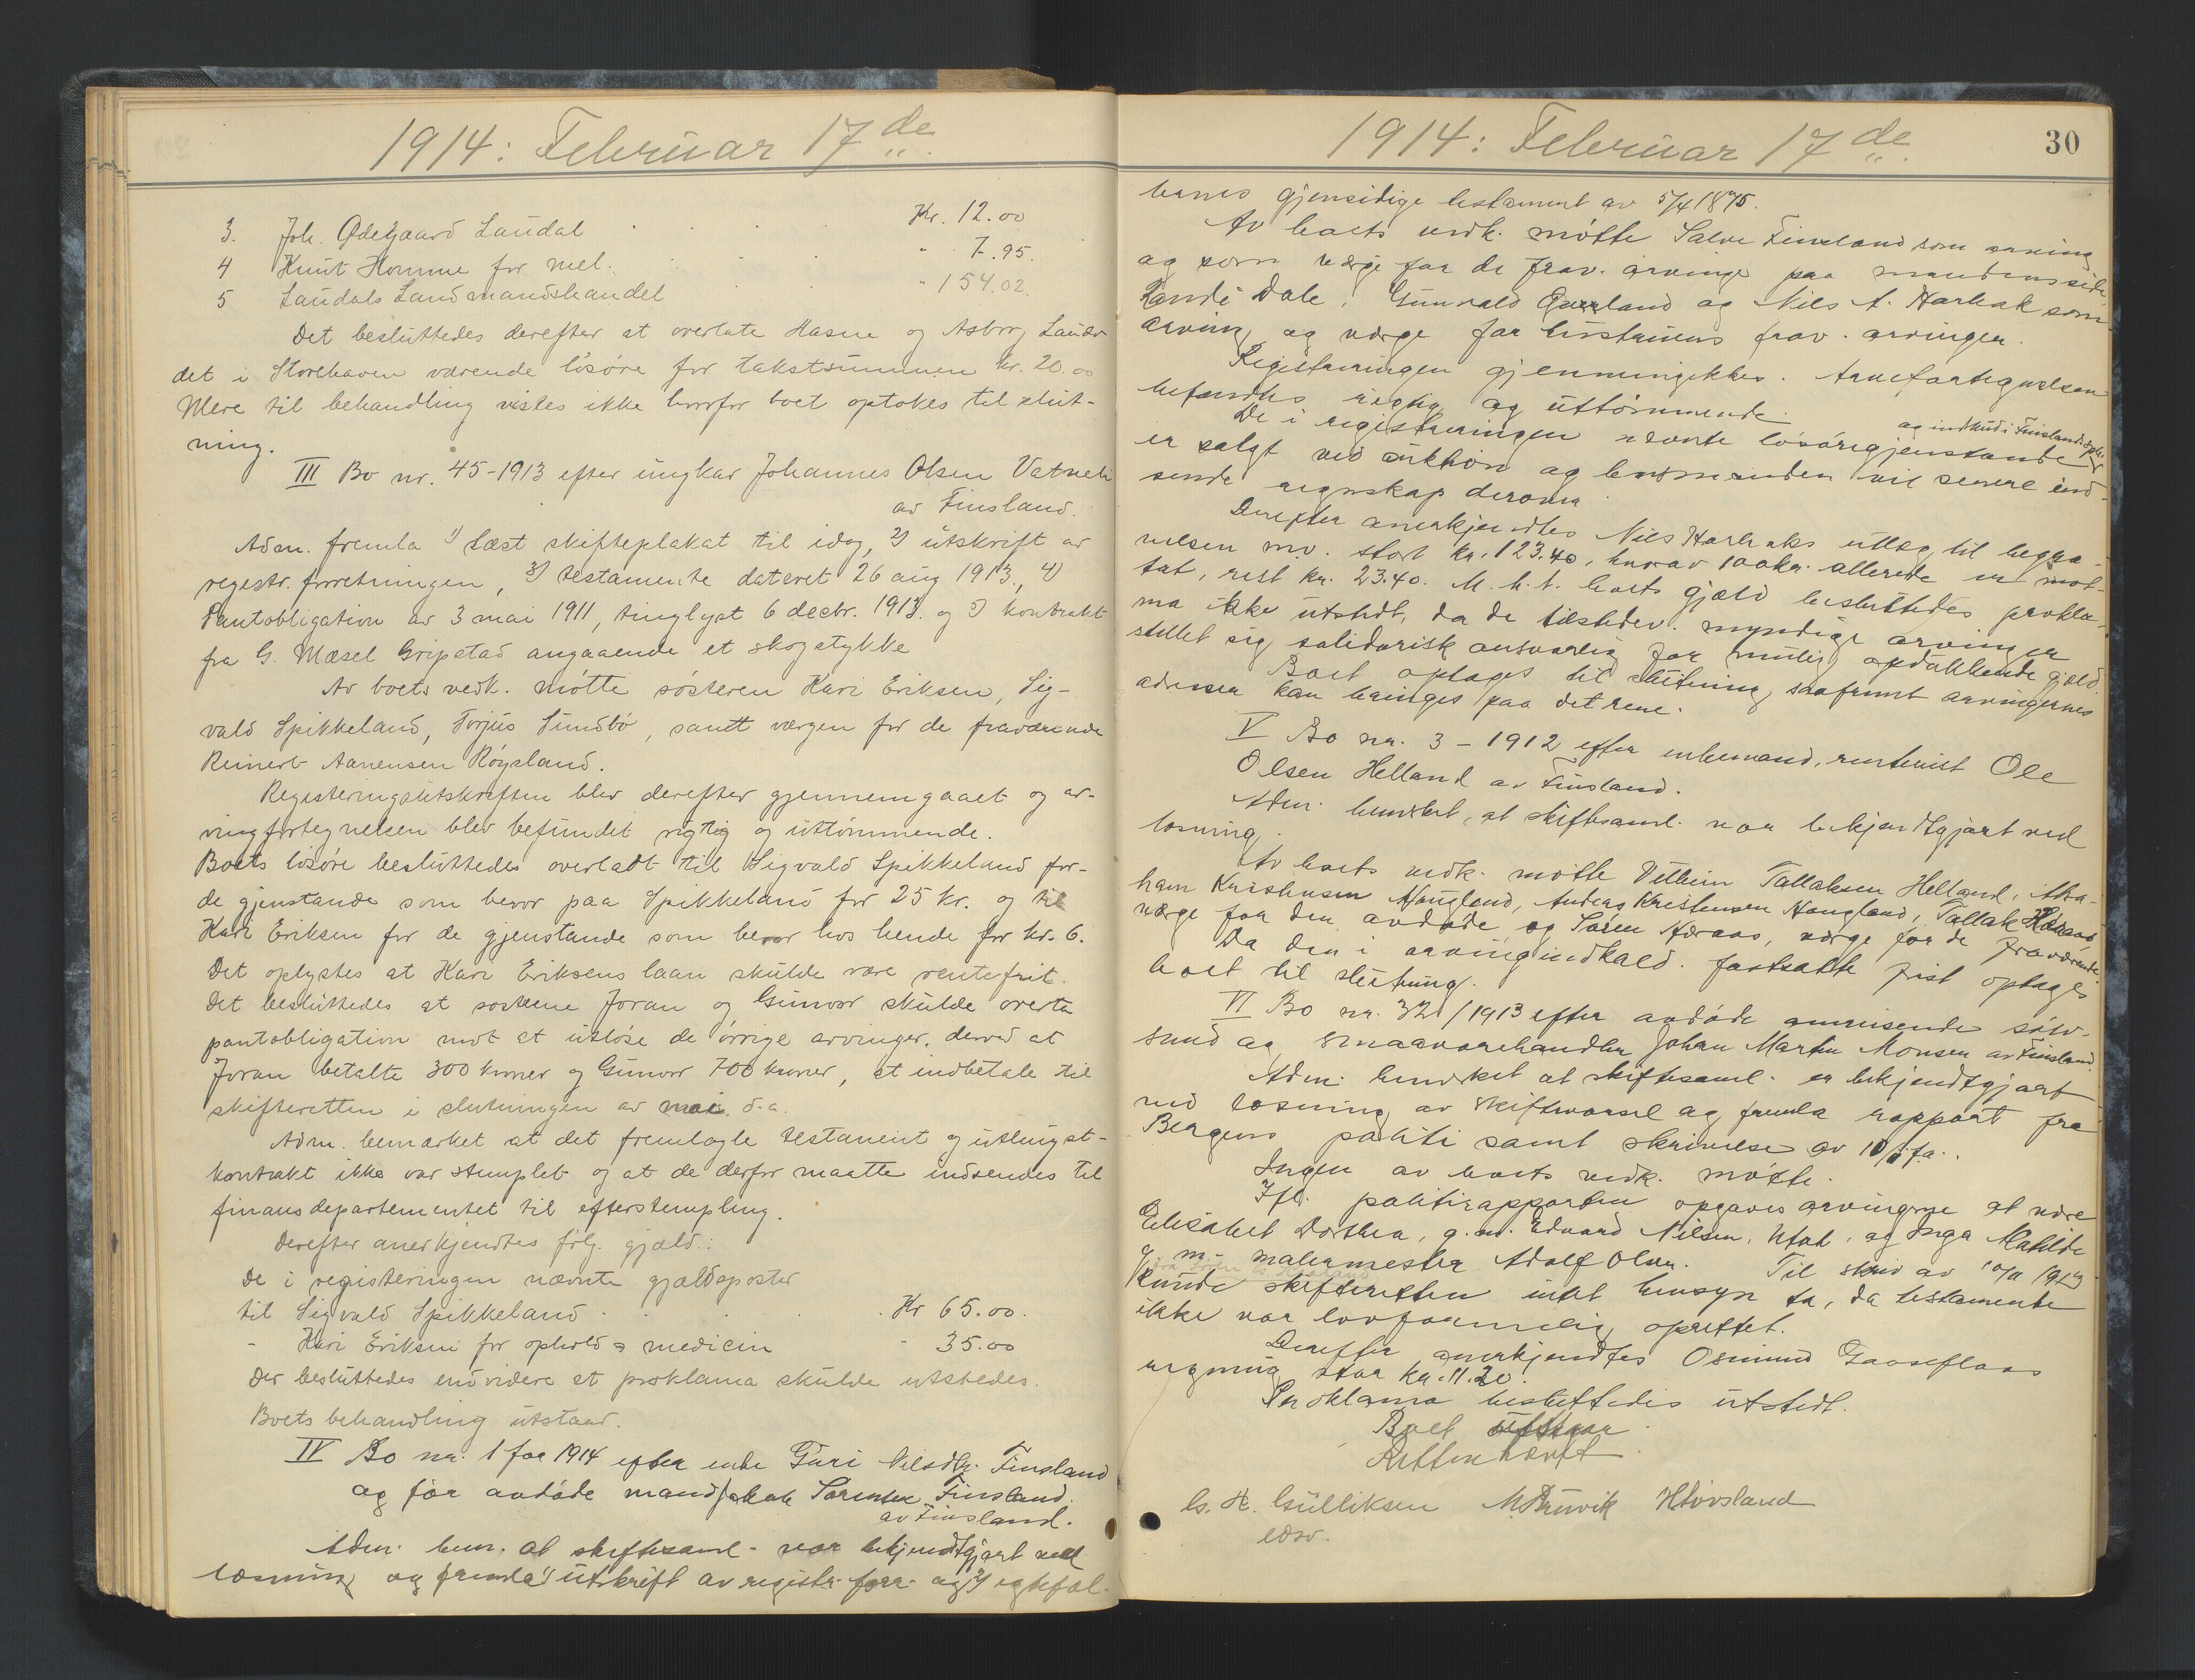 1914: Februar 17de
3. Joh. Ødegaard Laudal Kr. 12.00
4 Knut Homme for mel. " 7.95.
5 Laudals Landmandshandel " 154.02.
Det besluttedes derefter at overlate Hasne og Asbørg Laudal
det i Storehaven værende løsøre for takstsummen kr. 20.00
Mere til behandling vistes ikke hvorfor boet optokes til slut-
ning.
III Bo nr. 45-1913 efter ungkar Johannes Olsen Vatneli
av Finsland.
Adm. fremla 1) Læst skifteplakat til idag, 2) utskrift av
registr. forretningen, 3) testamente dateret 26 aug 1913, 4)
Pantobligation av 3 mai 1911, tinglyst 6 decbr. 1913. og 5) kontrakt
fra G. Mæsel Gripstad angaaende et skogstykke
Av boets vedk. møtte søsteren Kari Eriksen, Sig-
vald Spikkeland, Torjus Sundbø, samt værgen for de fraværende
Reinert Aanensen Røysland.
Registeringsutskriften blev derefter gjennemgaaet og ar-
vingfortegnelsen blev befundet rigtig og uttømmende.
Boets løsøre besluttedes overladt til Sigvald Spikkeland for
de gjenstande som beror paa Spikkeland for 25 kr. og til
Kari Eriksen for de gjenstande som beror hos hende for kr. 6.
Det oplystes at Kari Eriksens laan skulde være rentefrit.
Det besluttedes at søstrene Joran og Gunvor skulde overta
pantobligation mot at utløse de øvrige arvinger, derved at
Joran betalte 300 kroner og Gunvor 700 kroner, at indbetale til
skifteretten i slutningen av mai d.a.
Adm. bemærket at det fremlagte testament og utlingst-
kontrakt ikke var stemplet og at de derfor maatte indsendes til
finansdepartementet til efterstempling.
Derefter anerkjendtes følg. gjæld:
De i registeringen nævnte gjældsposter
til Sigvald Spikkeland Kr 65.00
- Kari Eriksen for ophold & medicin - 35.00
Der besluttedes endvidere at proklama skulde utstedes.
Boets behandling utstaar.
IV Bo nr. 1 for 1914 efter enke Guri Nilsdtr. Finsland
og før avdøde mand Jakob Sørensen Finsland
av Finsland.
Adm. bem. at skiftesaml. var bekjendtgjort ved
læsning og fremla 1) utskrift av registr. forr. og 2) egtefol-
1914: Februar 17de
30
kenes gjensidige testament av 5/4 1875.
Av boets vedk. møtte Salve Finsland som arving
og som værge for de frav. arvinge paa mandens side,
Dale, Gunvald og Nils A. Harbak som
arving og værge for hustruens frav. arvinger.
Registreringen gjennemgikkes. Arvefortegnelsen
befandtes rigtig og uttømmende.
og indkud i Finslands Spb.
De i registreringen nævnte løsøregjenstande
er solgt ved auktion og lensmanden vil senere ind-
sende regnskap derover.
Derefter anerkjendtes Nils Harbaks utlæg til begra-
velsen mv. stort kr. 123.40, hvorav 100 kr. allerede er mot-
tat, rest kr. 23.40. M.h.t. boets gjæld besluttedes prokla-
ma ikke utstedt, da de tilstedev. myndige arvinger
stillet sig solidarisk ansvarlig for mulig opdukkende gjæld.
Boet optages til slutning, saafremt arvingernes
adresser kan bringes paa det rene.
V Bo nr. 3 - 1912 efter enkemand, rentenist Ole
Olsen Helland av Finsland.
Adm. bemerket, at skiftesaml. var bekjendtgjort ved
læsning.
Av boets vedk. møtte Vilhelm Tallaksen Helland, Abra-
ham Kristensen Haugland, Anders Kristensen Haugland, Tallak
værge for den avdøde og Søren Aderaas, værge for de fraværende
Da den i arvingindkald. fastsatte frist optages
boet til slutning.
VI Bo nr. 32/1913 efter avdøde omreisende sølv-
smed og smaavarehandler Johan Martin Monsen av Finsland.
Adm. bemerket at skiftesaml. er bekjendtgjort
ved læsning av skiftevarsel og fremla rapport fra
Bergens politi samt skrivelse av 10/ f.a.
Ingen av boets vedk. møtte.
Ifl. politirapporten opgaves arvingerne at være
Elisabet Dorthea, g.m. Edvard Nilsen, Utah, og Inga Matilde
g. m. malermester Adolf Olsen. Til skriv av 10/11 1913
kunde skifteretten intet hensyn ta, da testamente
ikke var lovformelig oprettet.
Derefter anerkjendtes Osmund Gaaseflaas
regning stor kr. 11.20.
Proklama besluttedes utstedt.
Boet utstaar
Retten hævet
G. H. Gulliksen M. Bruvik H Lövsland
edsv.